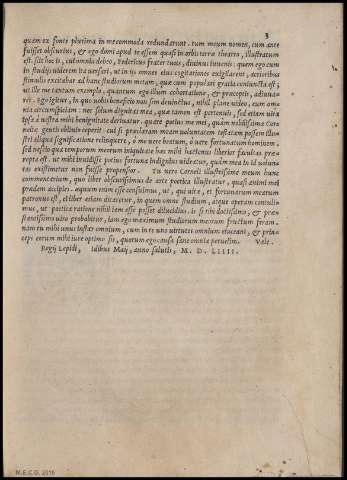 3
quam ex fonte plurima in me commoda redundarunt. tum meum nomen, cum ante
fuisset obscurius, & ego domi apud te essem quasi in orbis terræ theatro, illustratum
est. sed hoc is, cui multa debeo, Federicus frater tuus, diuinus iuuenis: quem ego cum
in studijs uiderem ita uersari, ut in ijs omnes eius cogitationes euigilarent, acrioribus
stimulis excitabar ad hanc studiorum metam, quæ cum populari gratia coniuncta est;
ut ille me tantum exemplo, quantum ego illum cohortatione, & præceptis, adiuua
ret. Ego igitur, in quo uobis beneficio non sim deuinctus, nihil plane uideo, cum omnia
mea circumspiciam: nec solum dignitas mea, quæ tamen est pertenuis, sed etiam uita
ipsa à uestra mihi benignitate deriuatur. quare potius me mei, quàm nobilissimæ Cor
neliæ gentis obliuio ceperit. cui si præclaram meam uoluntatem testatam possem illu
stri aliqua significatione relinquere, ô me uere beatum, ô uere fortunatum hominem.
sed nescio qua temporum meorum iniquitate hæc mihi hactenus libertas facultas præ
repta est. ut mihi inuidisse potius fortuna indignius uideatur, quàm mea in id uolun
tas existimetur non fuisse propensior. Tu uero Corneli illustrissime meum hunc
commentarium, quo liber obscurissimus de arte poetica illustratur, quasi animi mei
pradem accipies. æquum enim esse censuimus, ut, qui uitæ, et fortunarum mearum
patronus est, et liber etiam dicaretur, in quem omne studium, atque operam contulimus
ut poetica ratione nihil iam esse posset dilucidius. is si tibi doctissimo, & præ
stantissimo uiro probabitur, iam ego maximum studiorum meorum fructum feram.
nam tu mihi unus instar omnium, cum in te uno uirtutes omnium eluceant, & prin
ceps eorum mihi iure optimo sis, quorum ego causa sane omnia peruelim. Vale.
Regij Lepidi, Idibus Maij, anno salutis, M. D. LIIII.
N.E.C.G. 2016